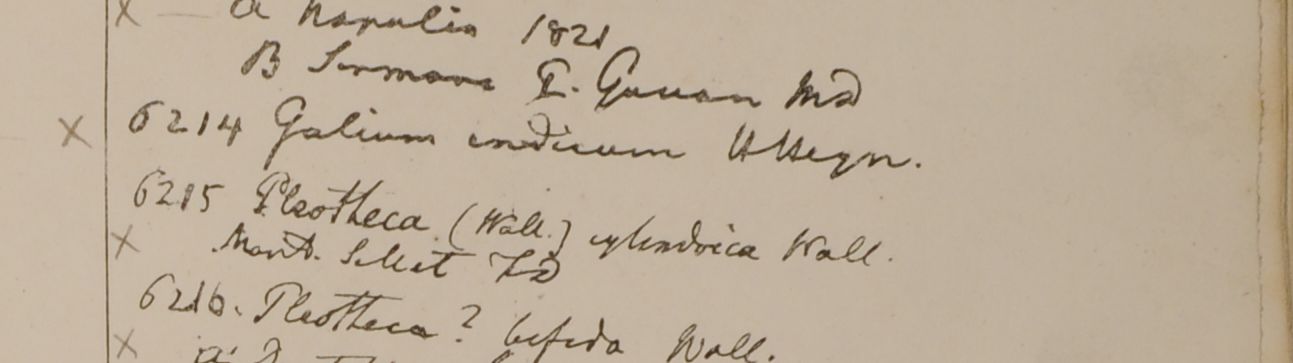 a Napalia 1821
B Sirmore G. Govan MD
6214 Galium indicum HHeyn.
6215 Pleotheca (Wall.) cylindrica Wall.
Mont. Silhet FD
6216. Pleotheca? bifida Wall.